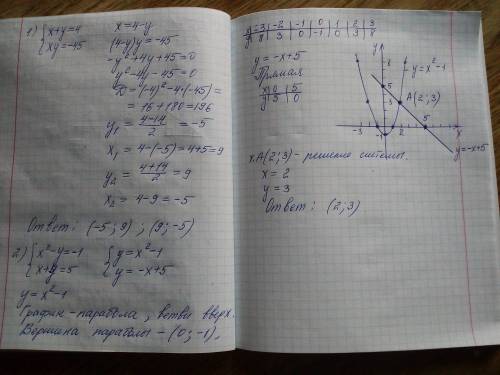 1) { x+y=4    x=4-y
xy=-45    (4-y)y=-45
-y²+4y+45=0
y²-4y-45=0
D=(-4)²-4·(-45)=
=16+180=196
y₁ = (4-14)/2 = -5
x₁ = 4-(-5)=4+5=9
y₂ = (4+14)/2 = 9
x₂ = 4-9=-5
Ответ: (-5;9); (9;-5)
2) { x²-y=-1    { y=x²-1
x+y=5    y=-x+5
y=x²-1
График-парабола, ветви вверх.
Вершина параболы - (0;-1).
x -3 | -2 | -1 | 0 | 1 | 2 | 3
y 8 | 3 | 0 | -1 | 0 | 3 | 8
y=-x+5
Прямая
x 0 | 5
y 5 | 0
y
8
y=x²-1
5
3
A(2;3)
-3
-1
2
5
x
y=-x+5
т.A(2;3)-решение системы.
x=2
y=3
Ответ: (2;3)